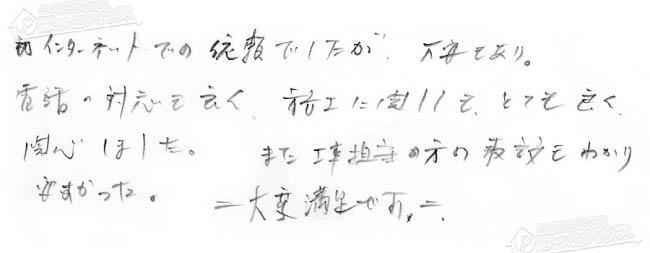 初インターネットでの依頼でしたが、不安もあり。
電話の対応も良く、施工に関しても、とても良く
関心しました。 また工事担当の方の説もわかり
安すかった。 =大変満足です。=